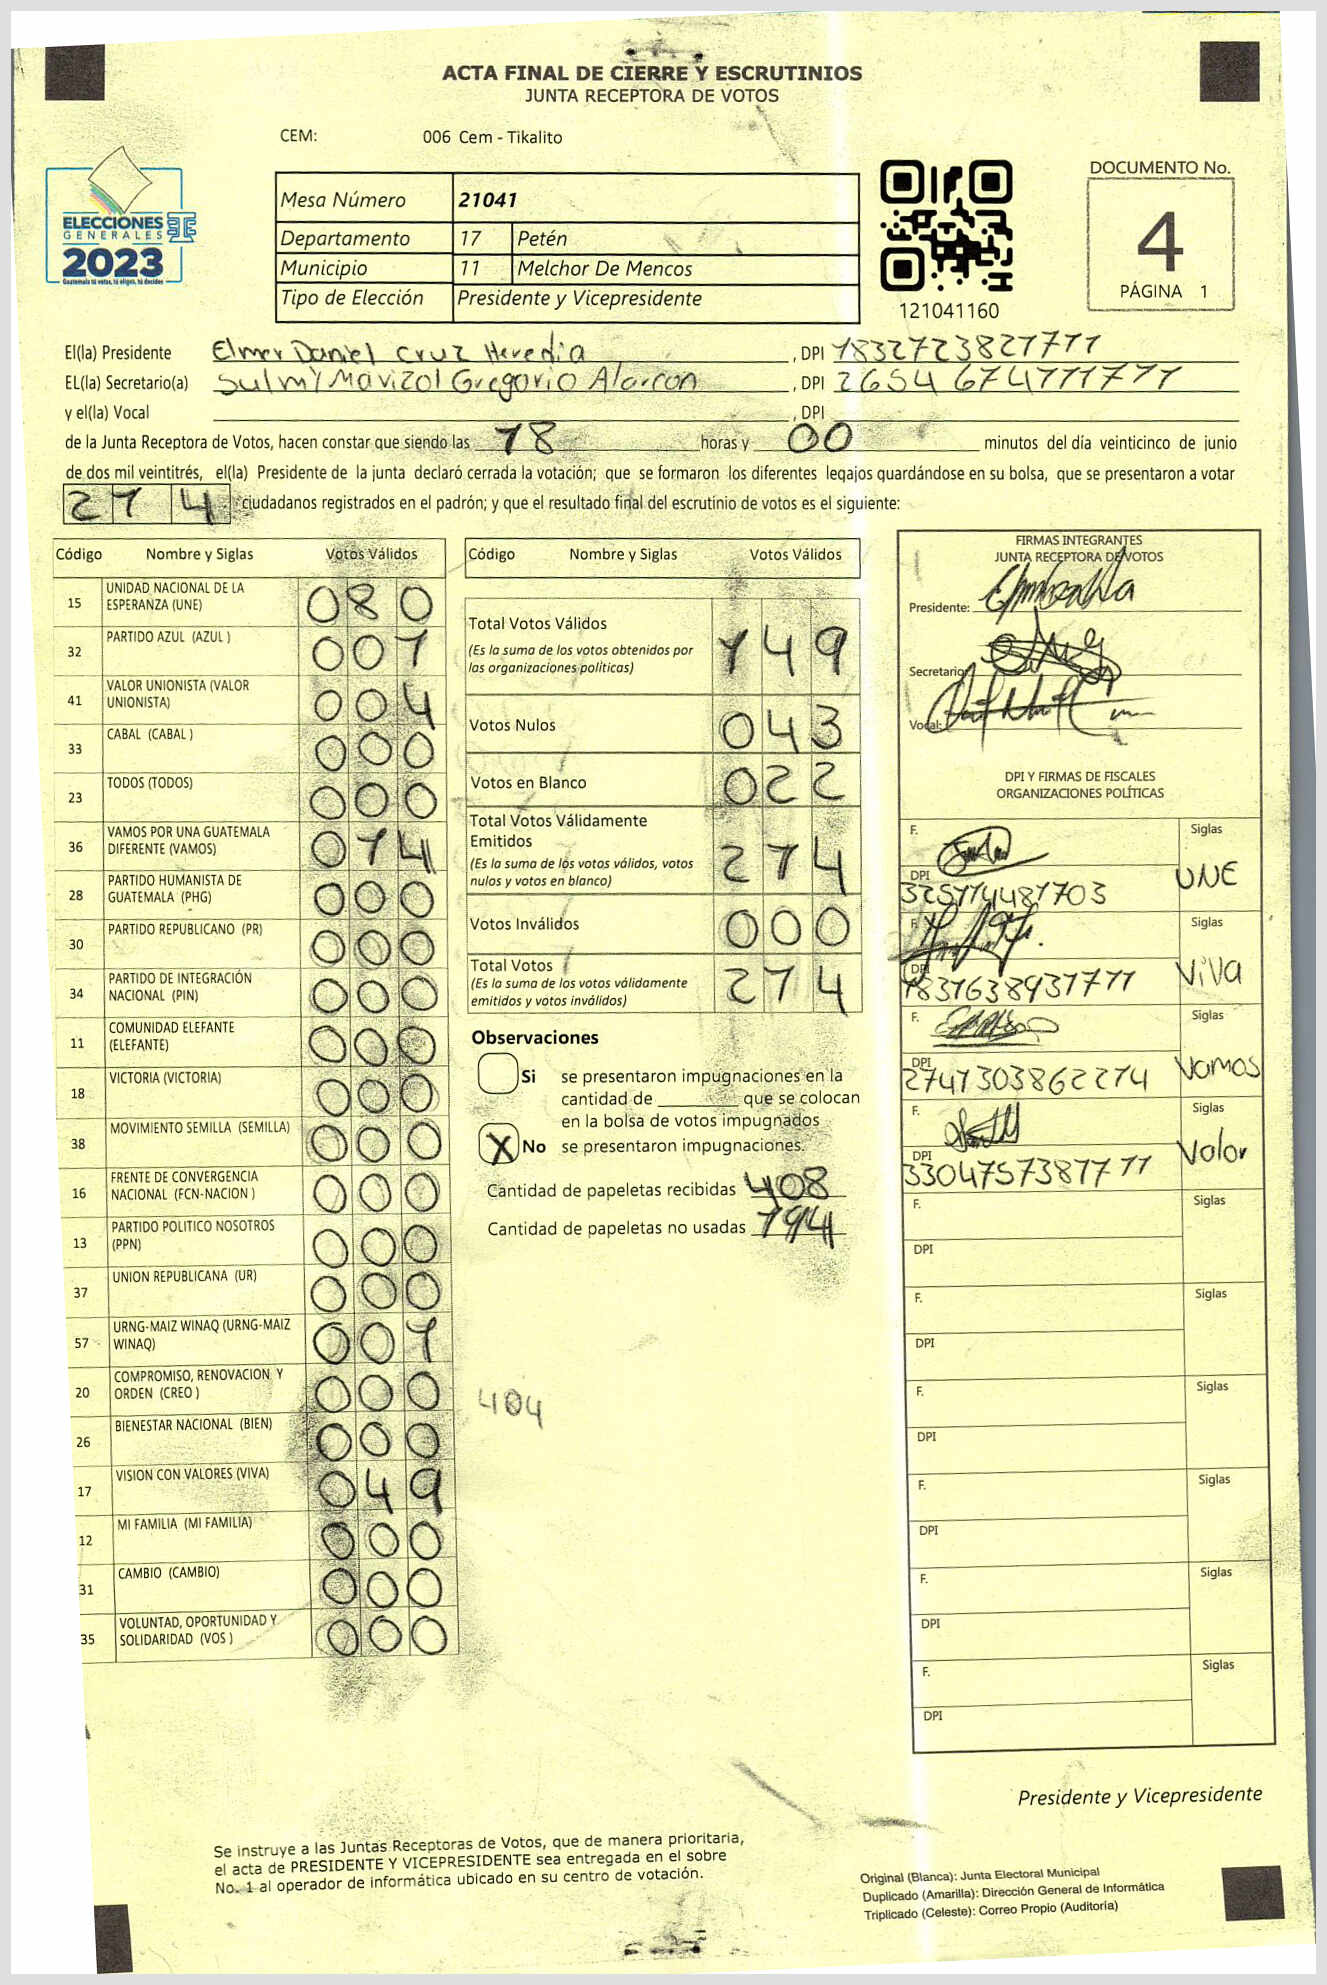 ACTA FINAL DE CIERRE Y ESCRUTINIOS
JUNTA RECEPTORA DE VOTOS
CEM: 006 Cem - Tikalito
ELECCIONES
GENERALES
2023
Guatemala tú votas, tú eliges, tú decides
Mesa Número 21041
Departamento 17 Petén
Municipio 11 Melchor De Mencos
Tipo de Elección Presidente y Vicepresidente
121041160
DOCUMENTO No.
4
PÁGINA 1
El(la) Presidente Elmer Daniel Cruz Heredia, DPI 1832723821711
EL(la) Secretario(a) Sulmy Marizol Gregorio Alarcon, DPI 2654674111711
y el(la) Vocal , DPI
de la Junta Receptora de Votos, hacen constar que siendo las 18 horas y 00 minutos del día veinticinco de junio
de dos mil veintitrés, el(la) Presidente de la junta declaró cerrada la votación; que se formaron los diferentes legajos guardándose en su bolsa, que se presentaron a votar
214 ciudadanos registrados en el padrón; y que el resultado final del escrutinio de votos es el siguiente:
Código Nombre y Siglas Votos Válidos
15 UNIDAD NACIONAL DE LA ESPERANZA (UNE) 080
32 PARTIDO AZUL (AZUL ) 001
41 VALOR UNIONISTA (VALOR UNIONISTA) 004
33 CABAL (CABAL ) 000
23 TODOS (TODOS) 000
36 VAMOS POR UNA GUATEMALA DIFERENTE (VAMOS) 014
28 PARTIDO HUMANISTA DE GUATEMALA (PHG) 000
30 PARTIDO REPUBLICANO (PR) 000
34 PARTIDO DE INTEGRACIÓN NACIONAL (PIN) 000
11 COMUNIDAD ELEFANTE (ELEFANTE) 000
18 VICTORIA (VICTORIA) 000
38 MOVIMIENTO SEMILLA (SEMILLA) 000
16 FRENTE DE CONVERGENCIA NACIONAL (FCN-NACION ) 000
13 PARTIDO POLITICO NOSOTROS (PPN) 000
37 UNION REPUBLICANA (UR) 000
57 URNG-MAIZ WINAQ (URNG-MAIZ WINAQ) 001
20 COMPROMISO, RENOVACION Y ORDEN (CREO ) 000
26 BIENESTAR NACIONAL (BIEN) 000
17 VISION CON VALORES (VIVA) 049
12 MI FAMILIA (MI FAMILIA) 000
31 CAMBIO (CAMBIO) 000
35 VOLUNTAD, OPORTUNIDAD Y SOLIDARIDAD (VOS ) 000
Código Nombre y Siglas Votos Válidos
Total Votos Válidos 149
(Es la suma de los votos obtenidos por
las organizaciones políticas)
Votos Nulos 043
Votos en Blanco 022
Total Votos Válidamente
Emitidos 214
(Es la suma de los votos válidos, votos
nulos y votos en blanco)
Votos Inválidos 000
Total Votos 214
(Es la suma de los votos válidamente
emitidos y votos inválidos)
Observaciones
Si se presentaron impugnaciones en la
cantidad de ________ que se colocan
en la bolsa de votos impugnados
X No se presentaron impugnaciones.
Cantidad de papeletas recibidas 408
Cantidad de papeletas no usadas 194
404
FIRMAS INTEGRANTES
JUNTA RECEPTORA DE VOTOS
Presidente:
Secretario:
Vocal:
DPI Y FIRMAS DE FISCALES
ORGANIZACIONES POLÍTICAS
F. Siglas
DPI UNE
3251144811703
F. Siglas
DPI VIVA
1831638931711
F. Siglas
DPI Vamos
2741303862214
F. Siglas
DPI Valor
3304757381711
F. Siglas
DPI
F. Siglas
DPI
F. Siglas
DPI
F. Siglas
DPI
F. Siglas
DPI
F. Siglas
DPI
Presidente y Vicepresidente
Se instruye a las Juntas Receptoras de Votos, que de manera prioritaria,
el acta de PRESIDENTE Y VICEPRESIDENTE sea entregada en el sobre
No. 1 al operador de informática ubicado en su centro de votación.
Original (Blanca): Junta Electoral Municipal
Duplicado (Amarilla): Dirección General de Informática
Triplicado (Celeste): Correo Propio (Auditoría)